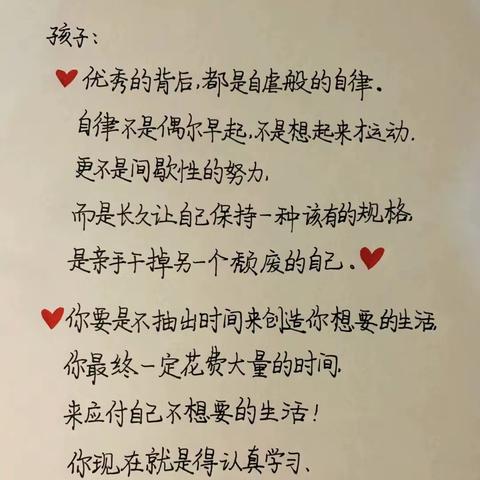 孩子：
优秀的背后,都是自虐般的自律.
自律不是偶尔早起,不是想起来才运动.
更不是间歇性的努力,
而是长久让自己保持一种该有的规格,
是亲手干掉另一个颓废的自己.
你要是不抽出时间来创造你想要的生活,
你最终一定花费大量的时间.
来应付自己不想要的生活!
你现在就是得认真学习、